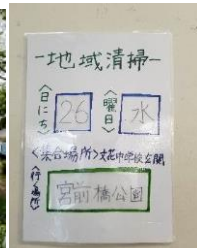 -地域清掃-
〈日にち〉 26 〈曜日〉 水
〈集合場所〉文花中学校玄関
〈行く場所〉 宮前橋公園